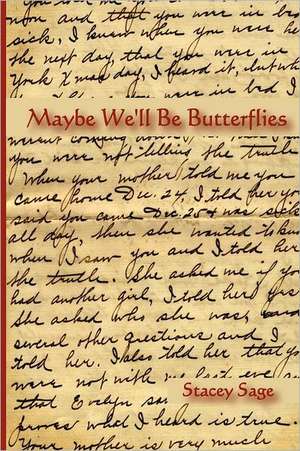 now and that you were in bed
sick, I knew when you were he
the next day, that you were in
York Xmas day, I heard it, but wh
you were in bed I
Maybe We'll Be Butterflies
you were not telling the truth
When your mother told me you
came home Dec. 24, I told her yo
said you came Dec. 25 & was
all day, then she wanted to kno
when I saw you and I told her
the truth. She asked me if yo
had another girl, I told her yes
She asked who she was, and
several other questions and I
told her. I also told her that yo
were not with me last eve
that Evelyn
Stacey Sage
proves what I heard is true.
Your mother is very much